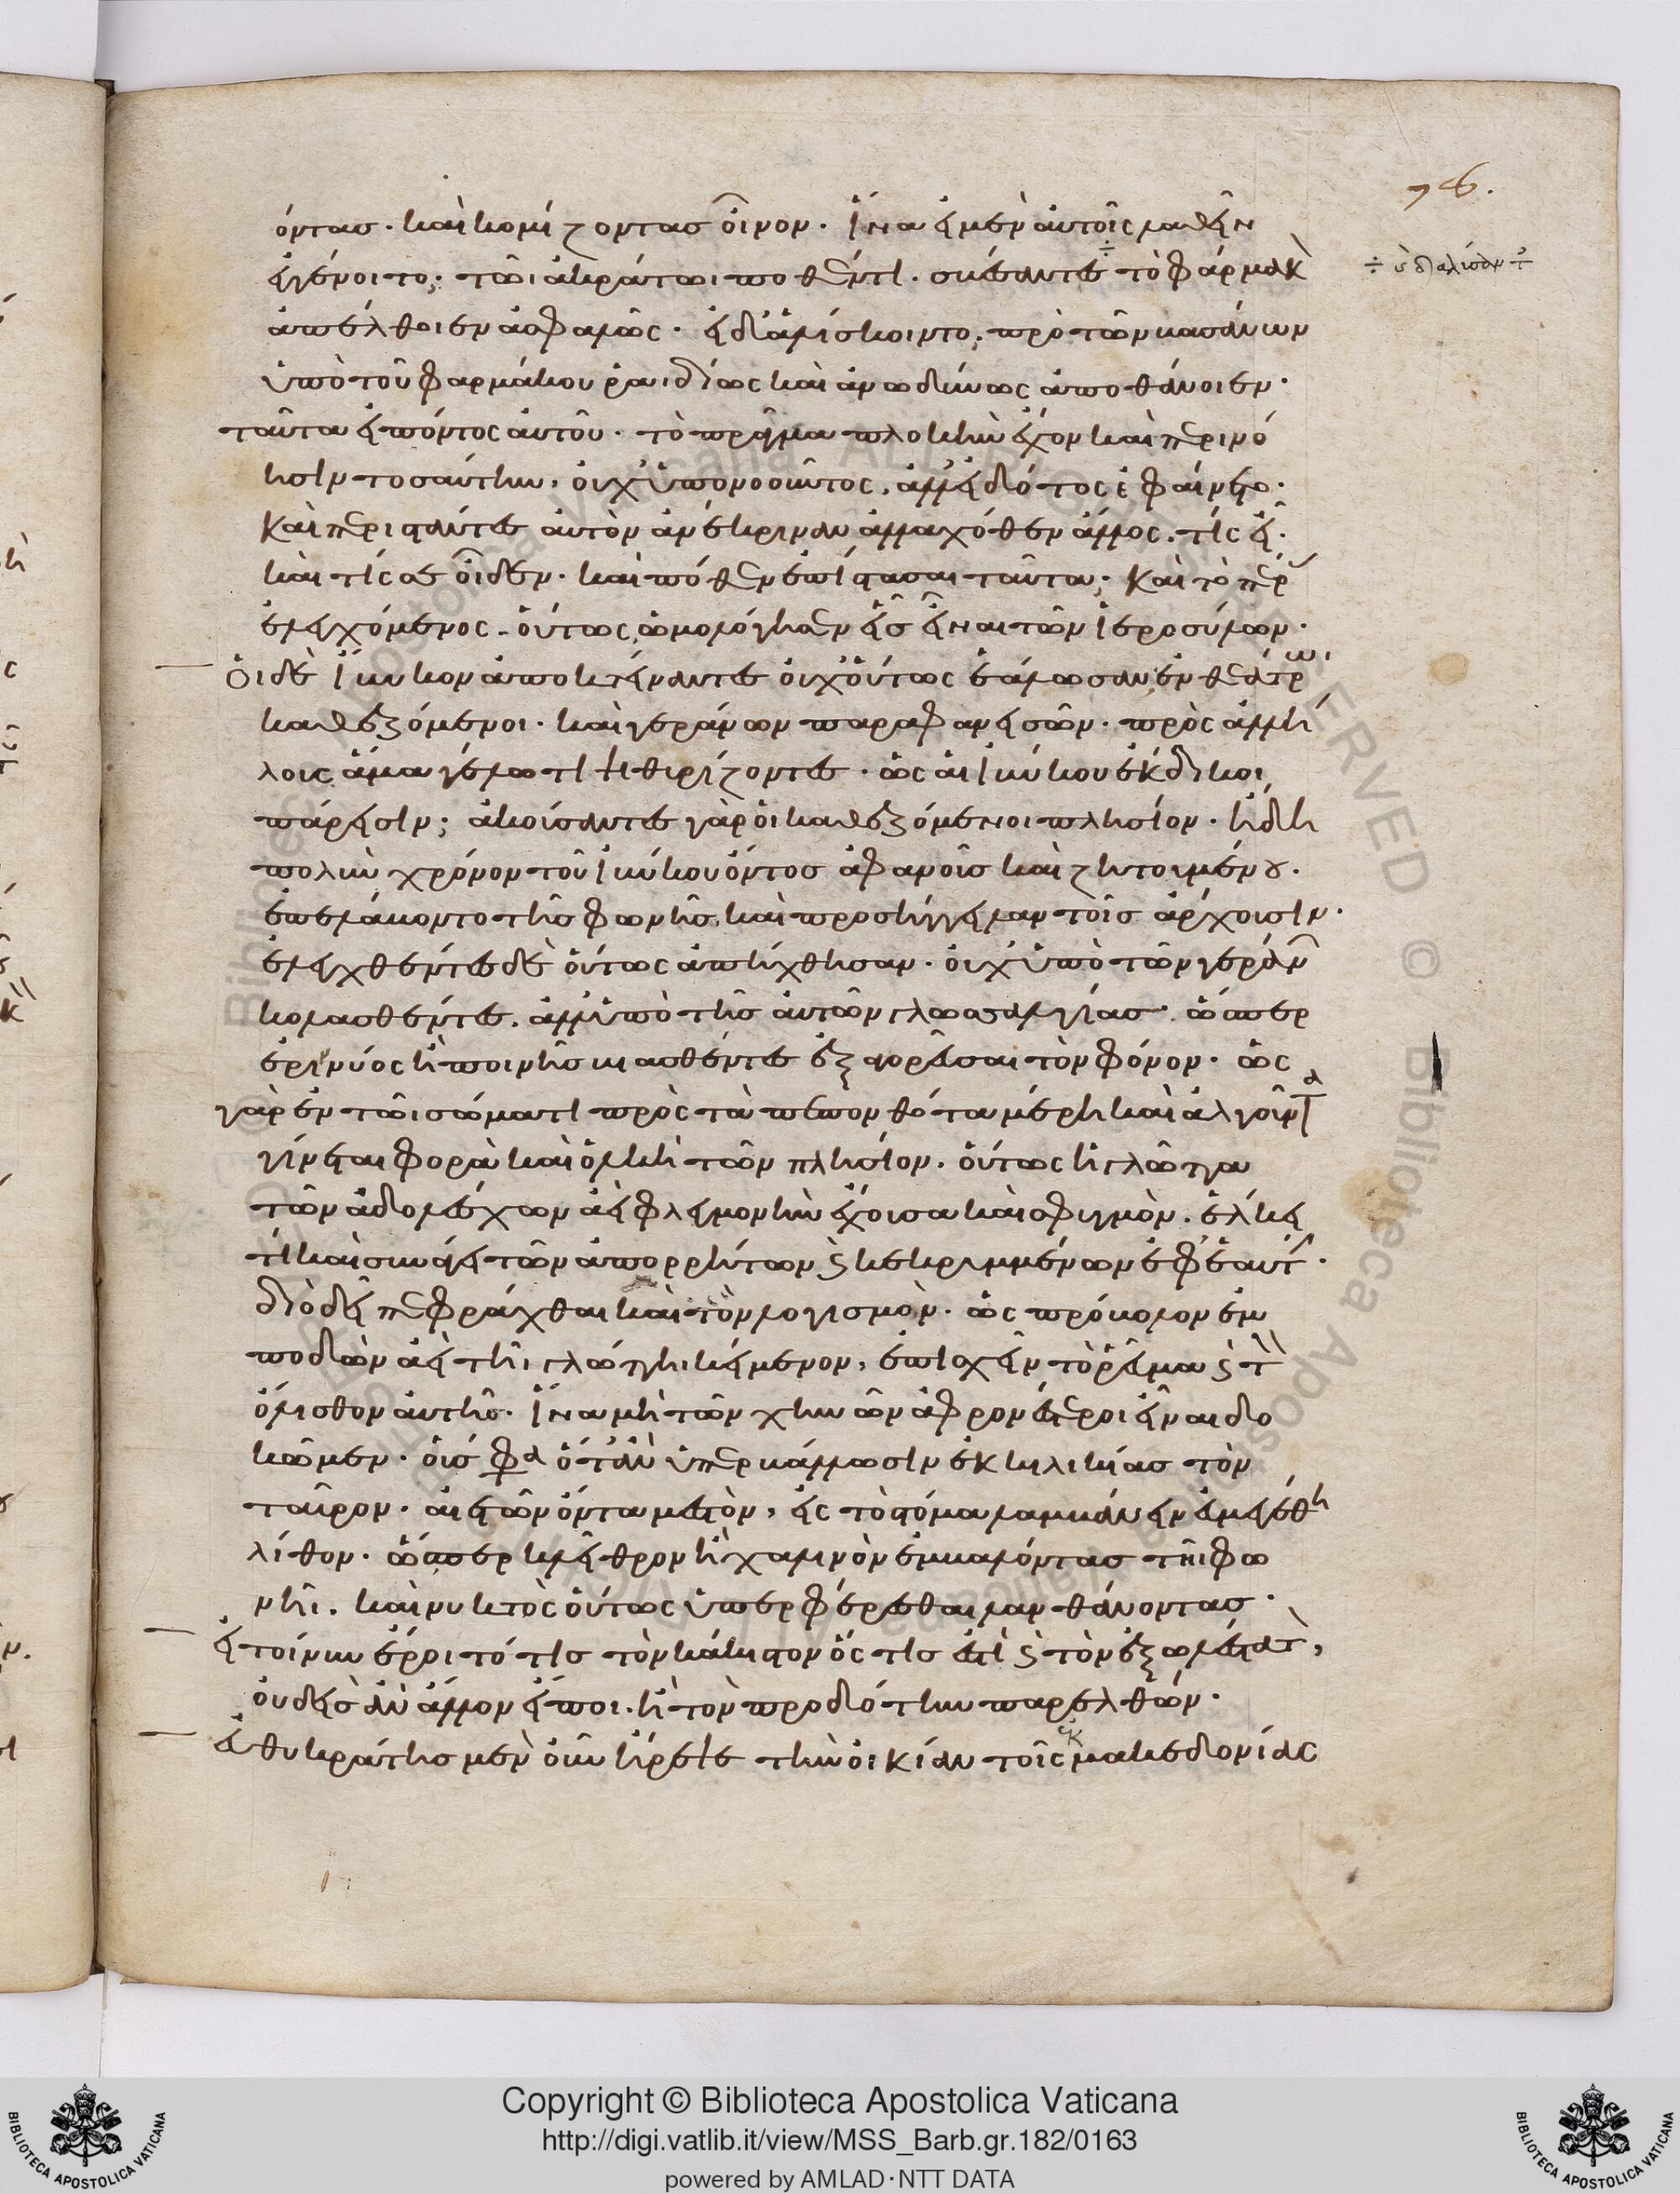 76.
όντας· καὶ κομίζοντας οἶνον· ἵνα εἰ μὲν αὐτοῖς λαθεῖν
ἐγγένοιτο, τῶι ἀκράτωι ποθέντι· σβέσαντες τὸ φάρμακ
÷ διαλύσαντ
ἀπέλθοιεν ἀσφαλῶς· εἰ δ' ἁλίσκοιντο, πρὸ τῶν βασάνων
ὑπὸ τοῦ φαρμάκου ῥαιδίως καὶ ἀνωδύνως ἀποθάνοιεν·
ταῦτα εἰπόντος αὐτοῦ· τὸ πρᾶγμα πλοκὴν ἔχον καὶ περινό
ησιν τοσαύτην, οὐχ ὑπονοοῦντος, ἀλλ' εἰδότος ἐφαίνετο·
Καὶ περιστάντες αὐτὸν ἀνέκριναν ἀλλαχόθεν ἄλλος. τίς εἶ·
καὶ τίς σε οἶδεν· καὶ πόθεν ἐπίστασαι ταῦτα; Καὶ τὸ πέρ
ἐλεγχόμενος. οὕτως ὡμολόγησεν εἷς εἶναι τῶν ἱεροσύλων·
Οἱ δὲ ἴβυκον ἀποκτείναντες οὐχ οὕτως ἑάλωσαν ἐν θεάτρωι
καθεζόμενοι· καὶ γεράνων παραφανεισῶν· πρὸς ἀλλή
λους ἅμα γέλωτι ψιθυρίζοντες· ὡς αἱ ἰβύκου ἔκδικοι
πάρεισιν; ἀκούσαντες γὰρ οἱ καθεζόμενοι πλησίον· ἤδη
πολὺν χρόνον τοῦ ἰβύκου ὄντος ἀφανοῦς καὶ ζητουμένου·
ἐπελάβοντο τῆς φωνῆς, καὶ προσήγγειλαν τοῖς ἄρχουσιν·
ἐλεγχθέντες δὲ οὕτως ἀπήχθησαν· οὐχ ὑπὸ τῶν γεράν
κολασθέντες. ἀλλ' ὑπὸ τῆς αὐτῶν γλωσσαλγίας· ὥσπερ
ἐριννύος ἢ ποινῆς βιασθέντες ἐξαγορεῦσαι τὸν φόνον· ὡς
γὰρ ἐν τῶι σώματι πρὸς τὰ πεπονθότα μέρη καὶ ἀλγοῦντα
γίνεται φορὰ καὶ ὁλκὴ τῶν πλησίον. οὕτως ἡ γλῶττα
τῶν ἀδολέσχων ἀεὶ φλεγμονὴν ἔχουσα καὶ σφυγμὸν. ἕλκει
τί καὶ συνάγει τῶν ἀπορρήτων καὶ κεκρυμμένων ἐφ' ἑαυτ·
διὸ δεῖ πεφράχθαι καὶ τὸν λογισμὸν· ὡς πρόβολον ἐμ
ποδὼν ἀεὶ τῆι γλώττηι κείμενον, ἐπισχεῖν τὸ ῥεῦμα καὶ τὸ
ὄλισθον αὐτῆς· ἵνα μὴ τῶν χηνῶν ἀφρονέστεροι εἶναι δο
κῶμεν· οὕς φα ὅταν ὑπερβάλλωσιν ἐκ κιλικίας τὸν
ταῦρον· ἀετῶν ὄντα μεστὸν, εἰς τὸ στόμα λαμβάνειν εὐμεγέθη
λίθον· ὥσπερ κλεῖθρον ἢ χαλινὸν ἐμβαλόντας τῆι φω
νῆι. καὶ νυκτὸς οὕτως ὑπερφέρεσθαι λανθάνοντας·
εἰ τοίνυν ἔροιτό τις τὸν κάκιστον ὅς τις ἐστὶ καὶ τὸν ἐξωλέστατ,
οὐδεὶς ἂν ἄλλον εἴποι. ἢ τὸν προδότην παρελθών·
εὐθυκράτης μὲν οὖν ἤρεψε τὴν οἰκίαν τοῖς ἐκ μακεδονίας
Copyright © Biblioteca Apostolica Vaticana
http://digi.vatlib.it/view/MSS_Barb.gr.182/0163
powered by AMLAD·NTT DATA
BIBLIOTECA APOSTOLICA VATICANA
BIBLIOTECA APOSTOLICA VATICANA